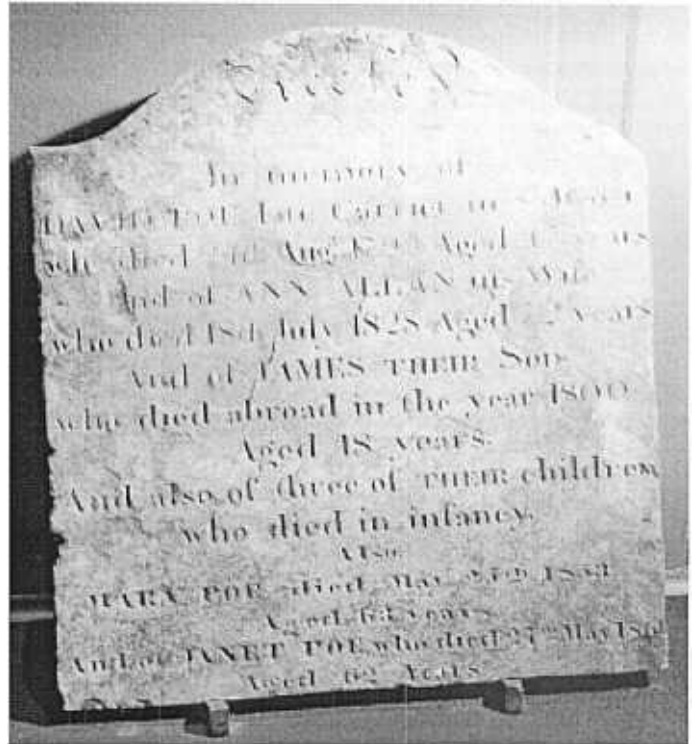 Erected
In memory of
DAVID POE late Carrier in
who died Aug. Aged years
And of ANN ALLAN his Wife
who died 18th July 1828 Aged years
And of JAMES THEIR Son
who died abroad in the year 1800
Aged 18 years.
And also of three of THEIR children
who died in infancy.
Also
MARY POE died May 1853
Aged 63 years
And of JANET POE who died 27th May
Aged 62 Years